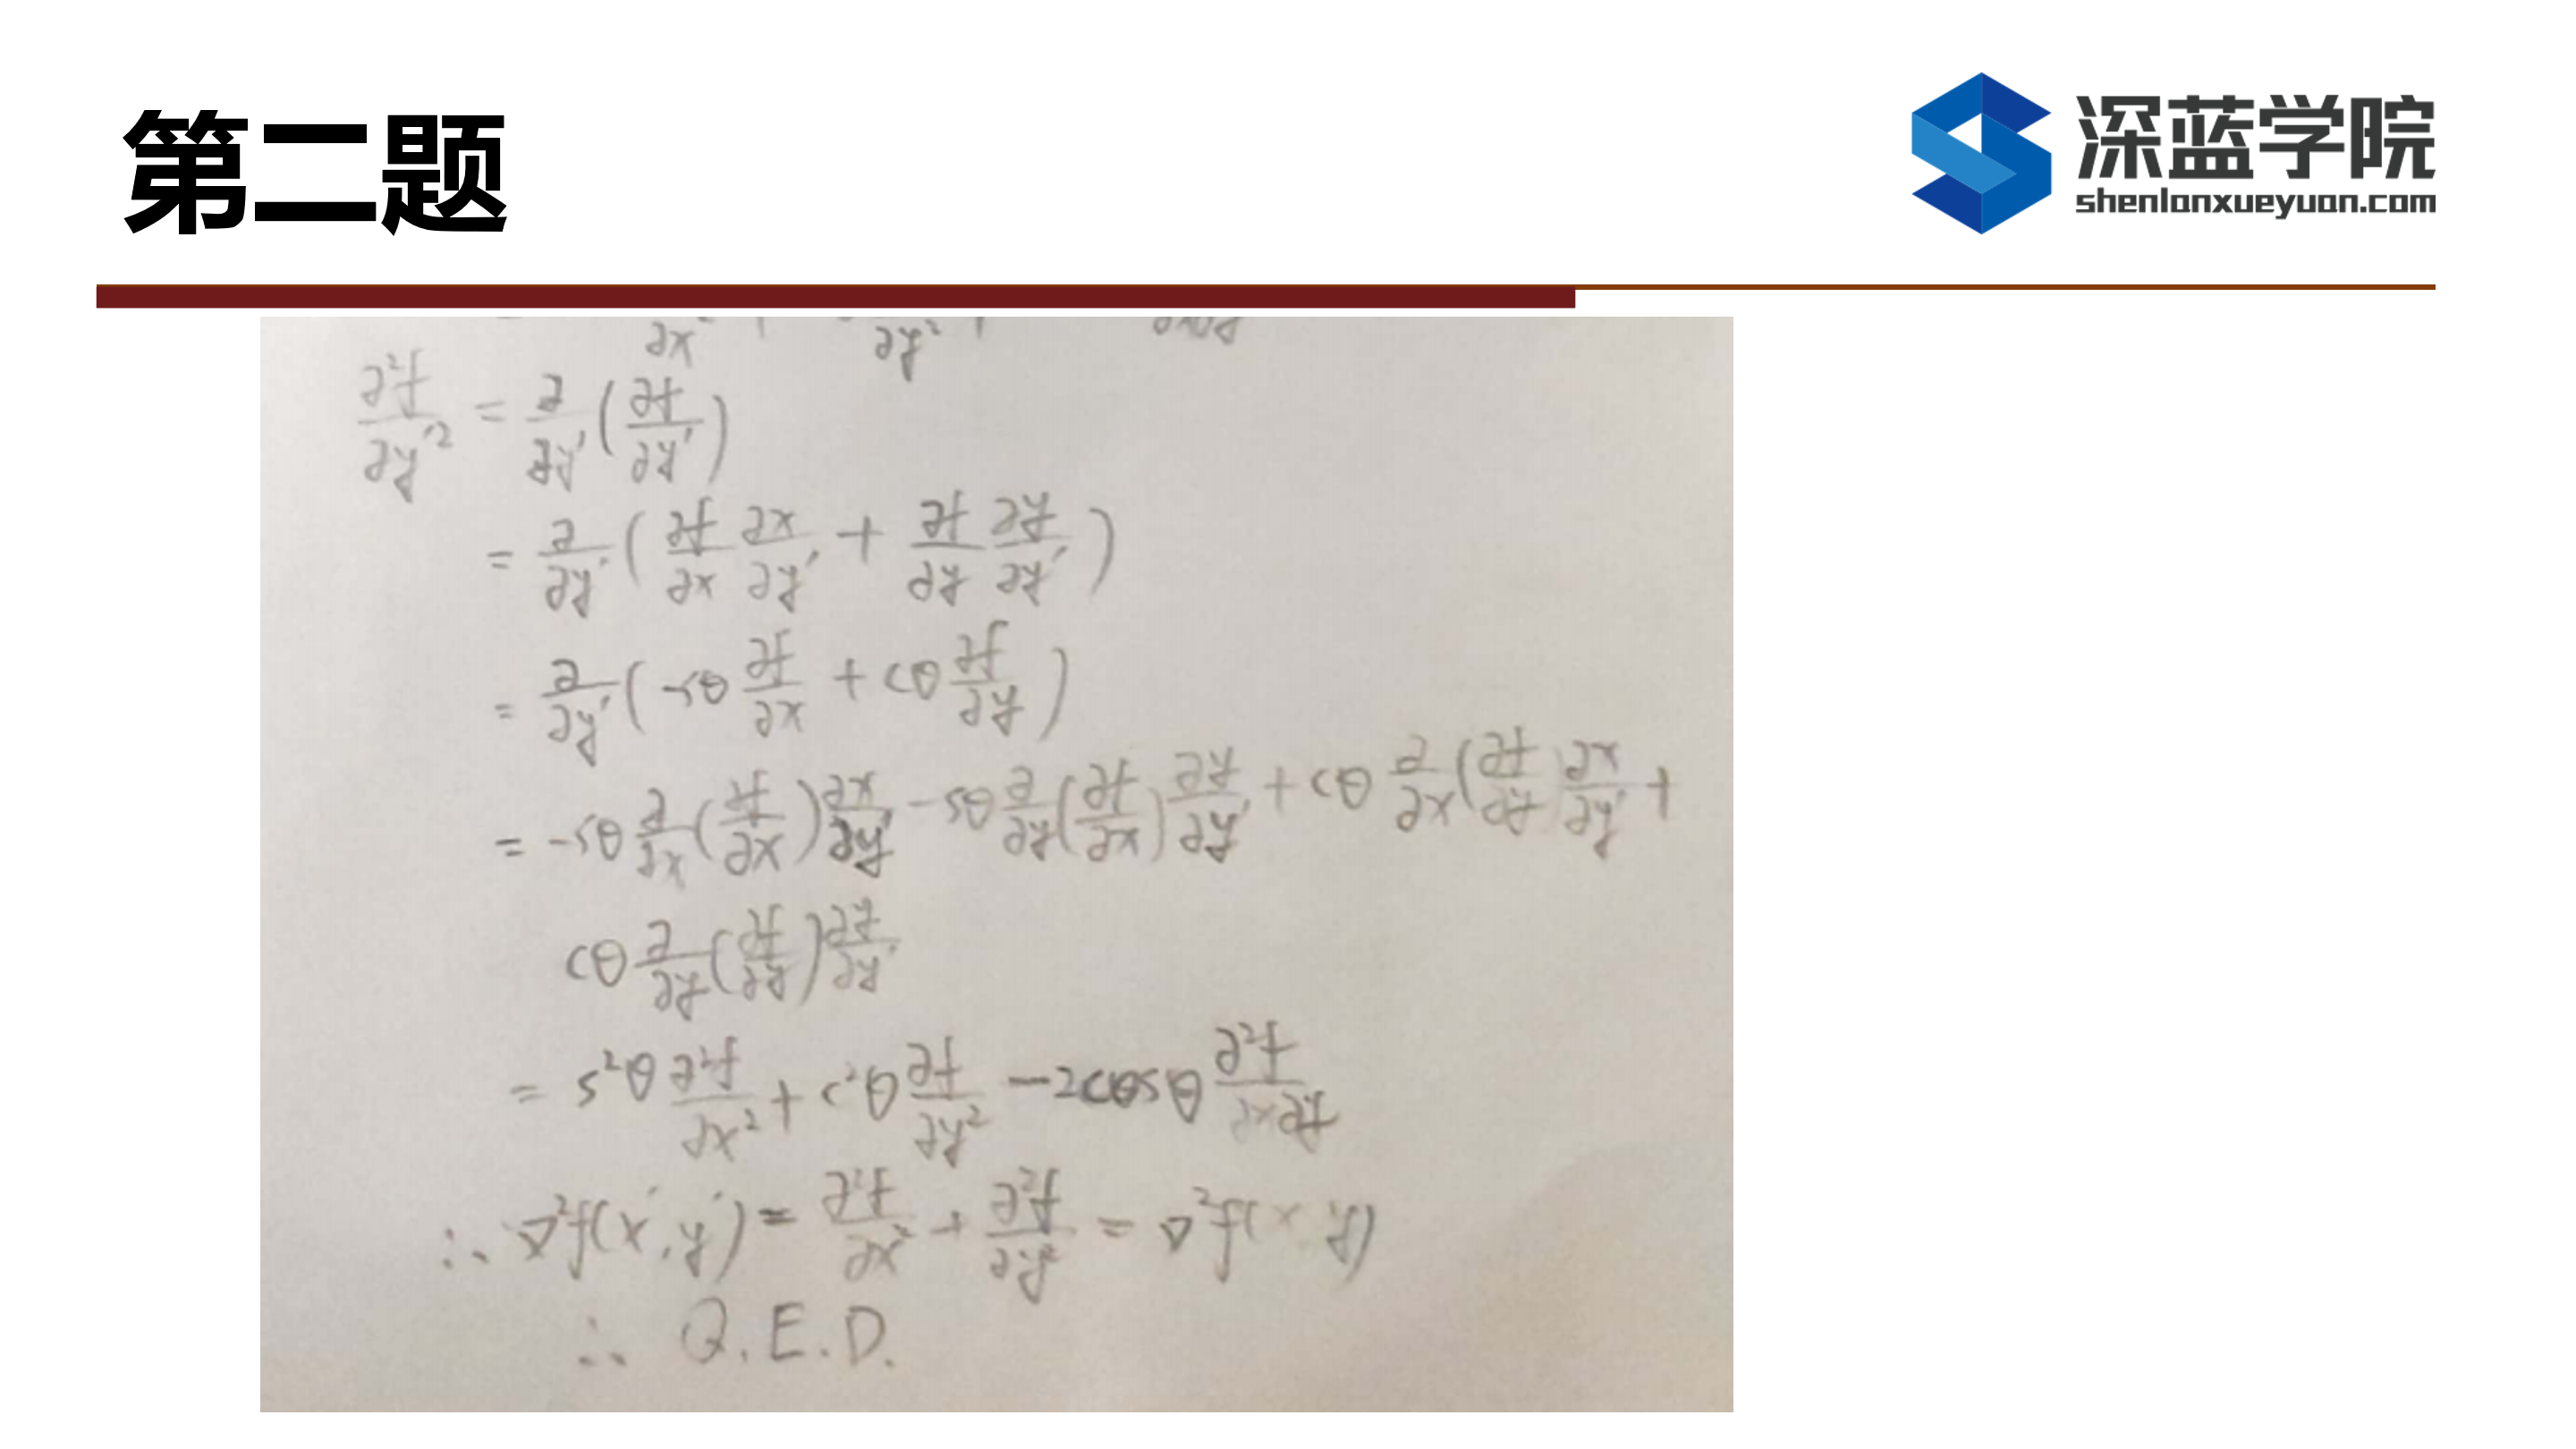 第二题
深蓝学院
shenlanxueyuan.com
∂x² + ∂y² + ∂x∂y
∂²f/∂y'² = ∂/∂y' (∂f/∂y')
= ∂/∂y' (∂f/∂x ∂x/∂y' + ∂f/∂y ∂y/∂y')
= ∂/∂y' (-sθ ∂f/∂x + cθ ∂f/∂y)
= -sθ ∂/∂x (∂f/∂x) ∂x/∂y' - sθ ∂/∂y (∂f/∂x) ∂y/∂y' + cθ ∂/∂x (∂f/∂y ∂x/∂y' +
cθ ∂/∂y (∂f/∂y) ∂y/∂y'
= s²θ ∂²f/∂x² + c²θ ∂f/∂y² - 2cθsθ ∂²f/∂x∂y
∴ ∇²f(x', y') = ∂²f/∂x² + ∂²f/∂y² = ∇²f(x y)
∴ Q.E.D.